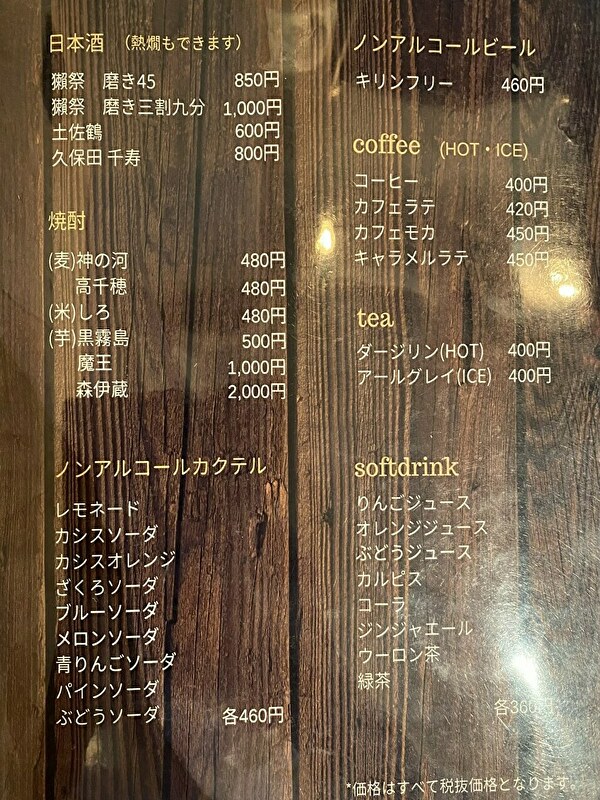 日本酒 （熱燗もできます）
獺祭 磨き45 850円
獺祭 磨き三割九分 1,000円
土佐鶴 600円
久保田 千寿 800円
焼酎
(麦)神の河 480円
高千穂 480円
(米)しろ 480円
(芋)黒霧島 500円
魔王 1,000円
森伊蔵 2,000円
ノンアルコールカクテル
レモネード
カシスソーダ
カシスオレンジ
ざくろソーダ
ブルーソーダ
メロンソーダ
青りんごソーダ
パインソーダ
ぶどうソーダ 各460円
ノンアルコールビール
キリンフリー 460円
coffee (HOT・ICE)
コーヒー 400円
カフェラテ 420円
カフェモカ 450円
キャラメルラテ 450円
tea
ダージリン(HOT) 400円
アールグレイ(ICE) 400円
softdrink
りんごジュース
オレンジジュース
ぶどうジュース
カルピス
コーラ
ジンジャエール
ウーロン茶
緑茶
各360円
*価格はすべて税抜価格となります。